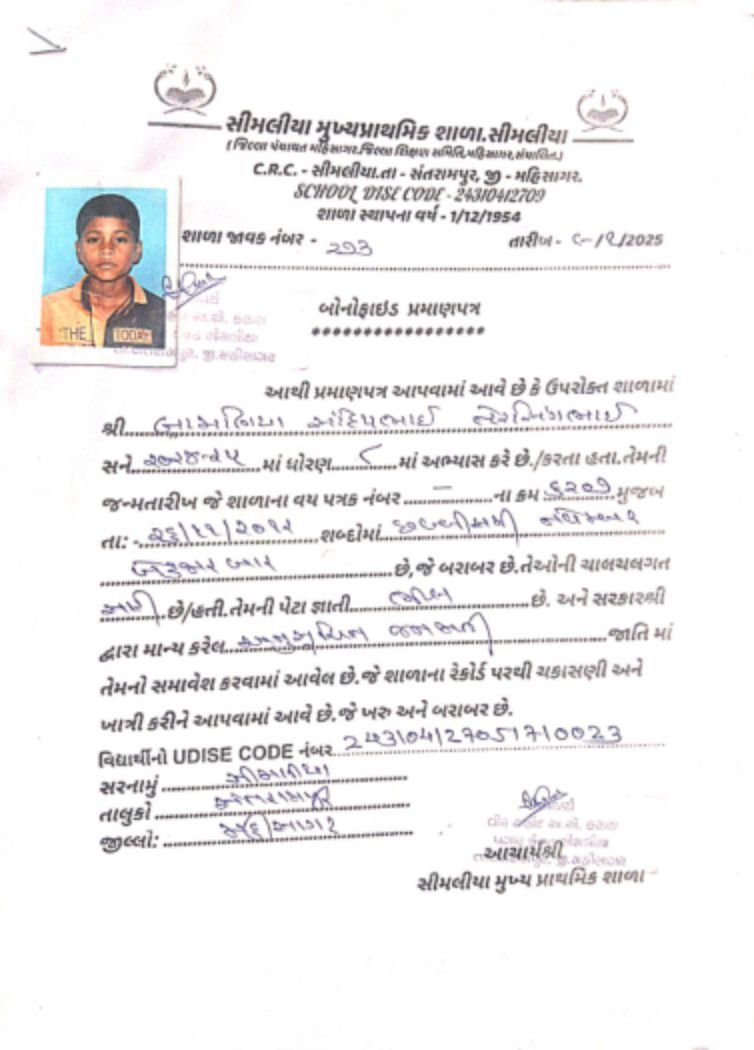 સીમલીયા મુખ્યપ્રાથમિક શાળા.સીમલીયા
( જિલ્લા પંચાયત મહિસાગર.જિલ્લા શિક્ષણ સમિતિ,મહિસાગર,સંચાલિત.)
C.R.C. - સીમલીયા.તા - સંતરામપુર, જી - મહિસાગર.
SCHOOL DISE CODE - 24310412709
શાળા સ્થાપના વર્ષ - 1/12/1954
શાળા જાવક નંબર - ૨૧૩
તારીખ - /2025
THE TODAY
બોનોફાઇડ પ્રમાણપત્ર
*****************
આથી પ્રમાણપત્ર આપવામાં આવે છે કે ઉપરોક્ત શાળામાં
શ્રી. બામણિયા સંદિપભાઈ
સને. માં ધોરણ ૮ માં અભ્યાસ કરે છે./કરતા હતા.તેમની
જન્મતારીખ જે શાળાના વય પત્રક નંબર — ના ક્રમ ૬૨૦૧ મુજબ
તા: - ૨૬/૧૧/૨૦૧૨ શબ્દોમાં છવ્વીસમી નવેમ્બર
બે હજાર બાર છે,જે બરાબર છે.તેઓની ચાલચલગત
સારી છે/હતી.તેમની પેટા જ્ઞાતી ભીલ છે. અને સરકારશ્રી
દ્વારા માન્ય કરેલ અનુસુચિત જનજાતિ જાતિ માં
તેમનો સમાવેશ કરવામાં આવેલ છે.જે શાળાના રેકોર્ડ પરથી ચકાસણી અને
ખાત્રી કરીને આપવામાં આવે છે.જે ખરુ અને બરાબર છે.
વિદ્યાર્થીનો UDISE CODE નંબર 243104127051710023
સરનામું સીમલીયા
તાલુકો સંતરામપુર
જીલ્લો: મહિસાગર
આચાર્યશ્રી
સીમલીયા મુખ્ય પ્રાથમિક શાળા